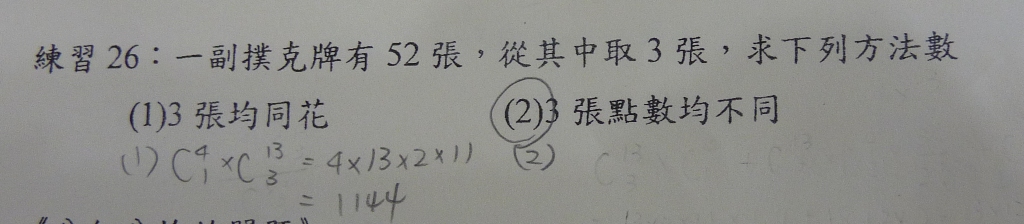 練習 26：一副撲克牌有 52 張，從其中取 3 張，求下列方法數
(1)3 張均同花 (2)3 張點數均不同
(1) C⁴₁ × C¹³₃ = 4×13×2×11 (2)
= 1144